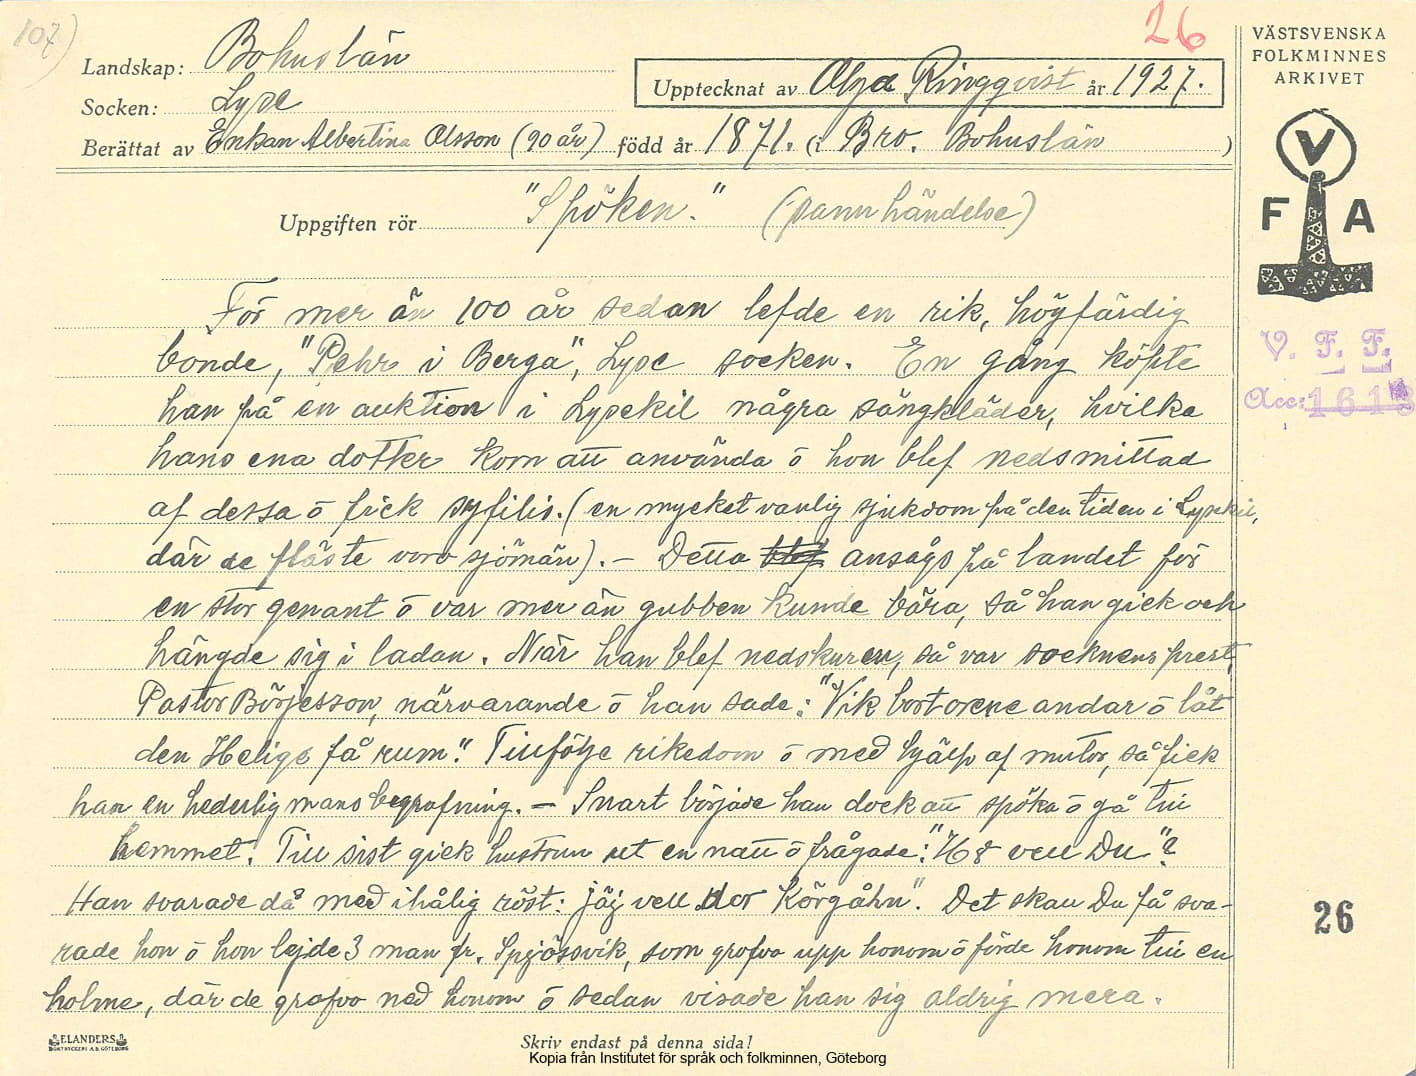 107)
26
VÄSTSVENSKA
FOLKMINNES
ARKIVET
Landskap: Bohuslän
Upptecknat av Olga Ringqvist år 1927.
Socken: Lyse
Berättat av Enkan Albertina Olsson (90 år) född år 1871. (i Bro. Bohuslän )
V
F A
Uppgiften rör "Spöken." (sann händelse)
För mer än 100 år sedan lefde en rik, högfärdig
bonde, "Pehr i Berga", Lyse socken. En gång köpte
han på en auktion i Lysekil några sängkläder, hvilka
hans ena dotter kom att använda ō hon blef nedsmittad
af dessa ō fick syfilis. (en mycket vanlig sjukdom på den tiden i Lysekil,
där de fläste voro sjömän). – Detta blef ansågs på landet för
en stor genant ō var mer än gubben kunde bära, så han gick och
hängde sig i ladan. När han blef nedskuren, så var socknens prest,
Pastor Börjesson, närvarande ō han sade: "Vik bort orene andar ō låt
den Helige få rum". Tillfölje rikedom ō med hjälp af mutor, så fick
han en hederlig mans begrafning. – Snart började han dock att spöka ō gå till
hemmet. Till sist gick hustrun ut en natt ō frågade: "Hå vell Du"?
Han svarade då med ihålig röst: jäj vell dor Körgåhn". Det skall Du få sva-
rade hon ō hon lejde 3 man fr. Spjössvik, som grofvo upp honom ō förde honom till en
holme, där de grofvo ned honom ō sedan visade han sig aldrig mera.
V. F. F.
Acc: 1613
26
ELANDERS
BOKTRYCKERI A.B. GÖTEBORG
Skriv endast på denna sida!
Kopia från Institutet för språk och folkminnen, Göteborg